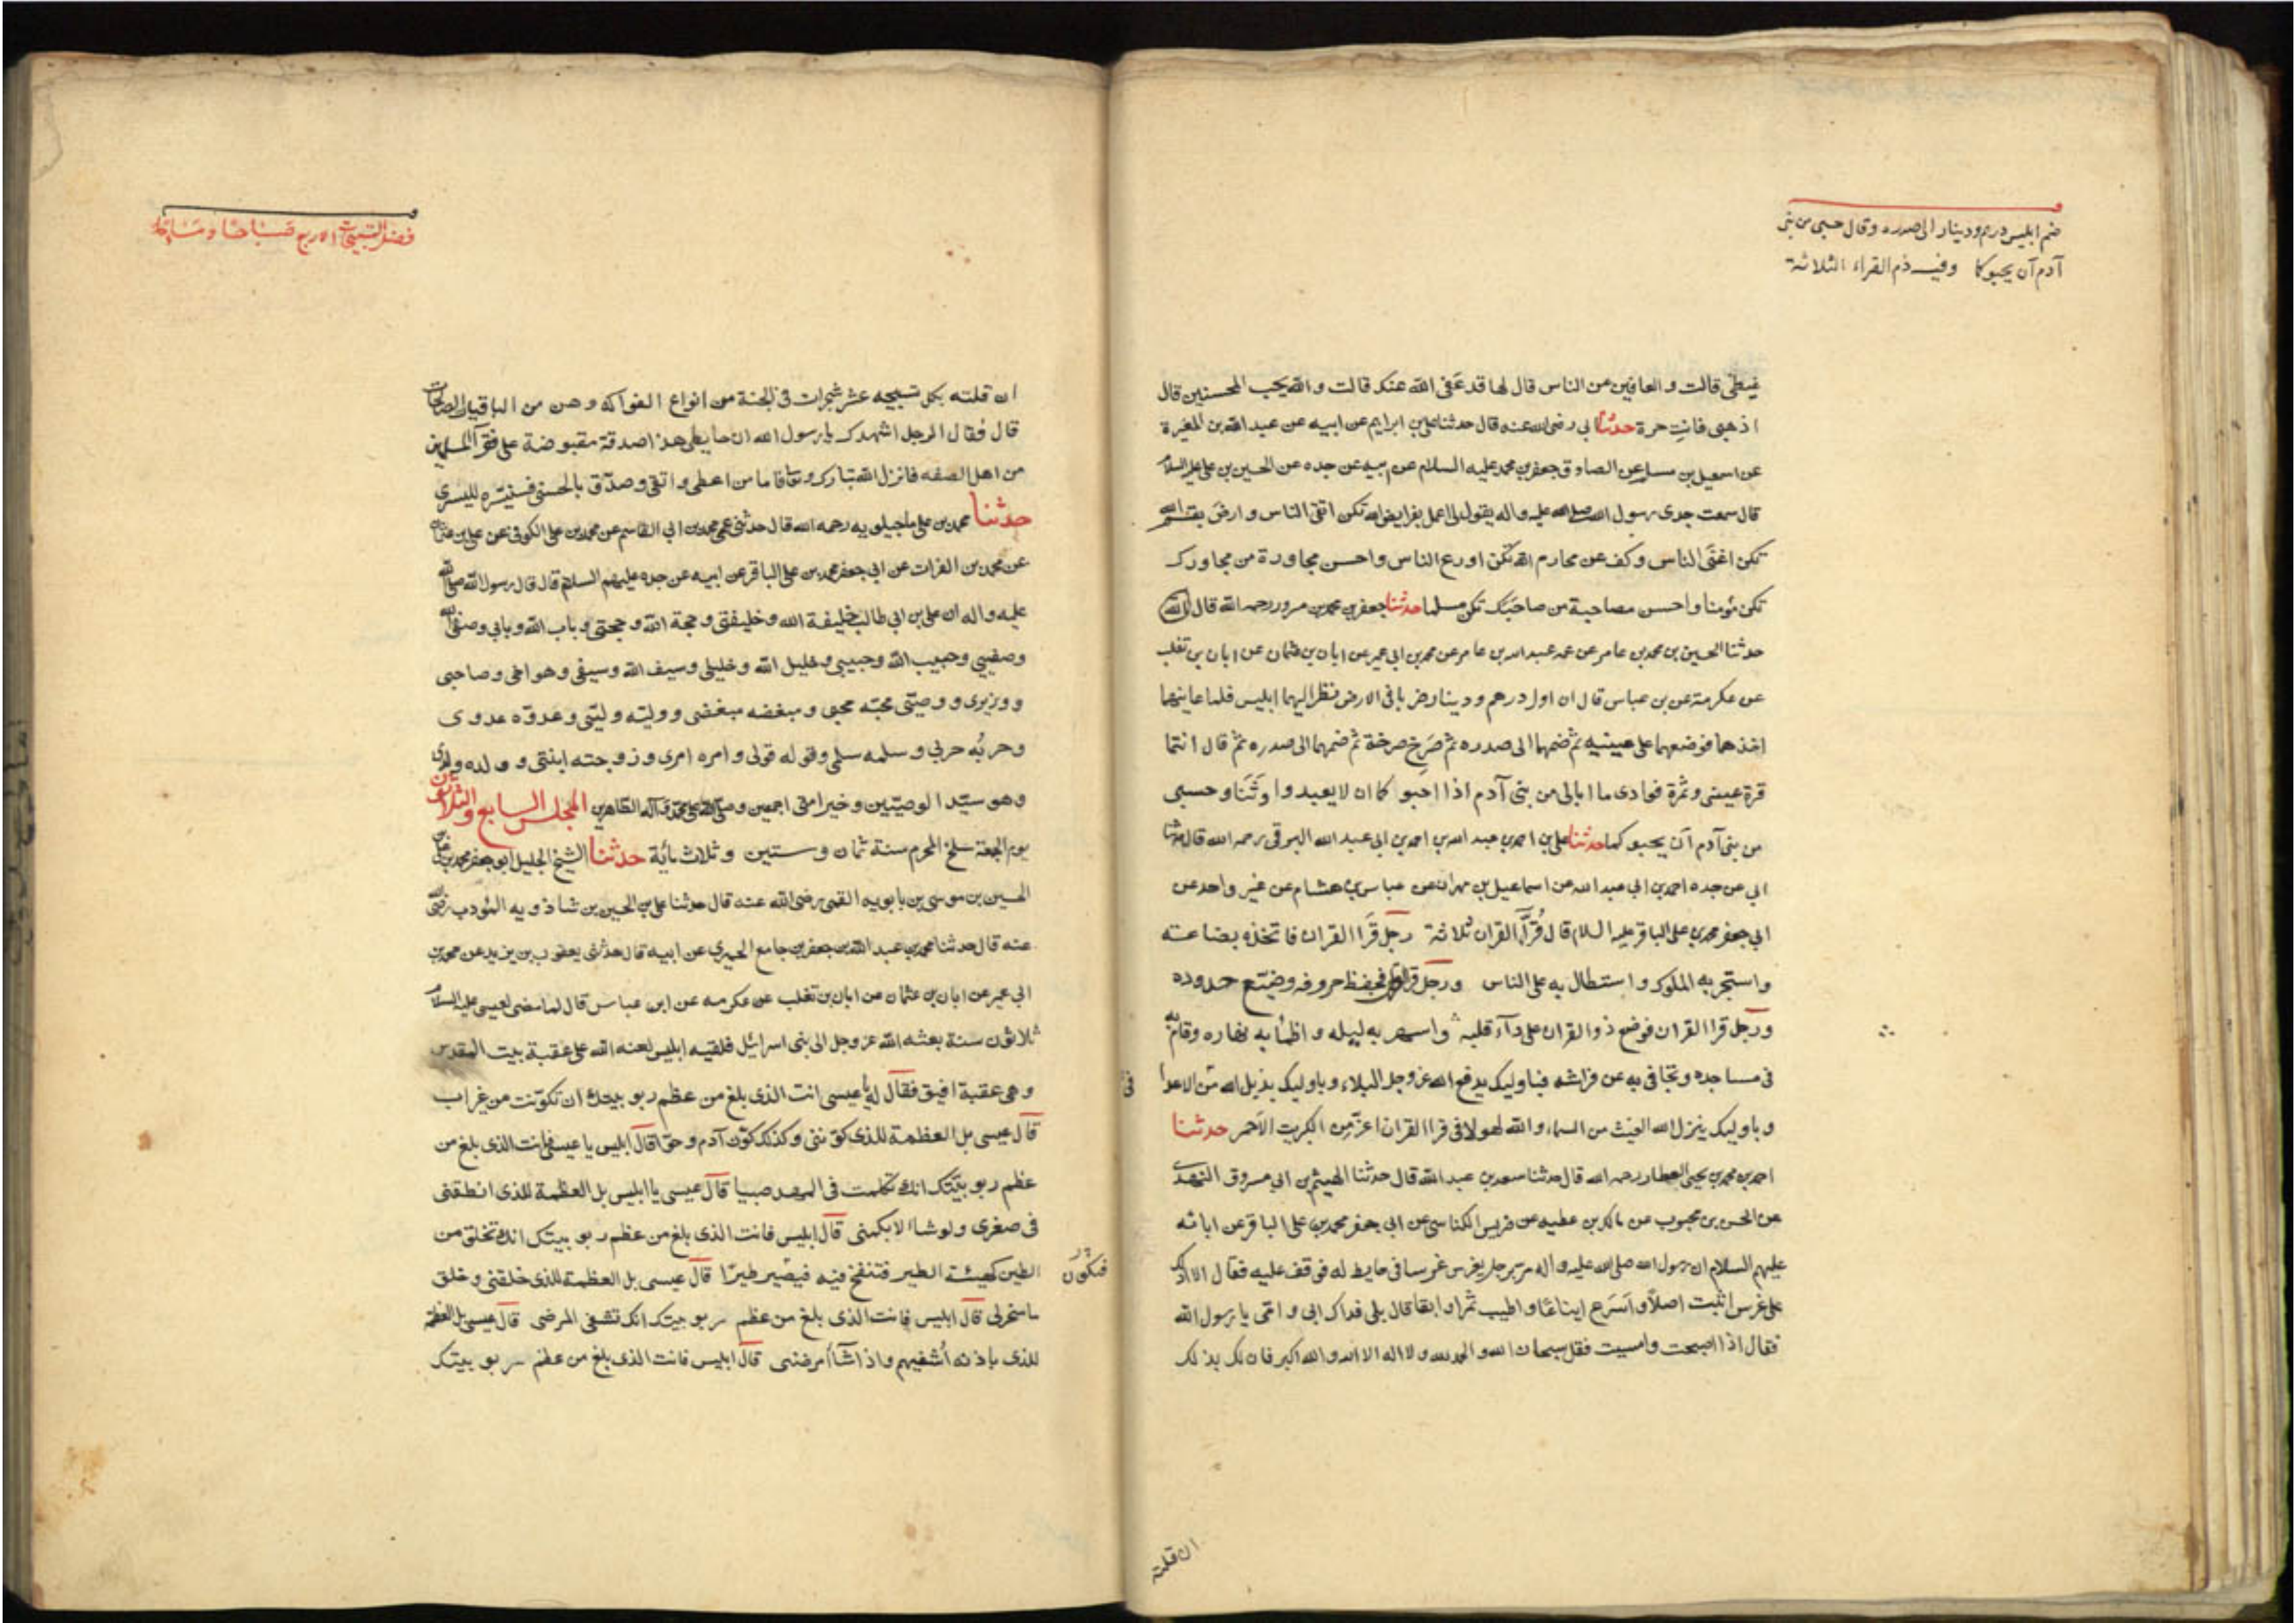 ضم ابليس درهم ودينار الى صدره وقال حسبى من بنى
آدم أن يحبوكا وفيه ذم القراء الثلاثة
غيظى قالت والعافين عن الناس قال لها قد عفى الله عنك قالت والله يحب المحسنين قال
اذهبى فانت حرة حدثنا ابى رضى الله عنه قال حدثنا على بن ابراهيم عن ابيه عن عبد الله بن المغيرة
عن اسمعيل بن مسلم عن الصادق جعفر بن محمد عليه السلام عن ابيه عن جده عن الحسين بن على عليهم السلام
قال سمعت جدى رسول الله صلى الله عليه واله يقول لى اعمل بفرايض الله تكن اتقى الناس وارض بقسم الله
تكن اغنى الناس وكف عن محارم الله تكن اورع الناس واحسن مجاورة من مجاورك
تكن مؤمنا واحسن مصاحبة من صاحبك تكن مسلما حدثنا جعفر بن محمد بن مسرور رحمه الله قال
حدثنا الحسين بن محمد بن عامر عن عمه عبد الله بن عامر عن محمد بن ابى عمير عن ابان بن عثمان عن ابان بن تغلب
عن عكرمة عن بن عباس قال ان اول درهم ودينار ضربا فى الارض نظر اليهما ابليس فلما عاينهما
اخذهما فوضعهما على عينيه ثم ضمهما الى صدره ثم صرخ صرخة ثم ضمهما الى صدره ثم قال انتما
قرة عينى وثمرة فوادى ما ابالى من بنى آدم اذا احبوكما ان لا يعبدوا وثنا وحسبى
من بنى آدم أن يحبوكما حدثنا على بن احمد بن عبد الله بن احمد بن ابى عبد الله البرقى رحمه الله قال حدثنا
ابى عن جده احمد بن ابى عبد الله عن اسماعيل بن مهران عن عباس بن هشام عن غير واحد عن
ابى جعفر محمد بن على الباقر عليه السلام قال قُرّاء القران ثلاثة رجل قرا القران فاتخذه بضاعة
واستجر به الملوك واستطال به على الناس ورجل قرا القران فحفظ حروفه وضيّع حدوده
ورجل قرا القران فوضع دواء القران على داء قلبه واسهر به ليله واظمأ به نهاره وقام به
فى مساجده وتجافى به عن فراشه فباوليك يدفع الله عز وجل البلاء وباوليك يديل الله من الاعداء
وباوليك ينزل الله الغيث من السماء والله لهولا فى قرا القران اعز من الكبريت الاحمر حدثنا
احمد بن محمد بن يحيى العطار رحمه الله قال حدثنا سعد بن عبد الله قال حدثنا الهيثم بن ابى مسروق النهدى
عن الحسن بن محبوب عن مالك بن عطيه عن ضريس الكناسى عن ابى جعفر محمد بن على الباقر عن ابائه
عليهم السلام ان رسول الله صلى الله عليه واله مر برجل يغرس غرسا فى حايط له فوقف عليه فقال الا ادلك
على غرس اثبت اصلا واسرع ايناعا واطيب ثمرا وابقا قال بلى فداك ابى وامى يا رسول الله
فقال اذا اصبحت وامسيت فقل سبحان الله والحمد لله ولا اله الا الله والله اكبر فان لك بذلك
ان قلته
فضل التسبيحات الاربع صباحا ومساء
ان قلته بكل تسبيحه عشر شجرات فى الجنة من انواع الفواكه وهن من الباقيات الصالحات
قال فقال الرجل اشهدك يا رسول الله ان حايطى هذا صدقة مقبوضة على فقرآ المسلمين
من اهل الصفه فانزل الله تبارك وتعا فاما من اعطى واتقى وصدّق بالحسنى فسنيسّره لليسرى
حدثنا محمد بن على ماجيلويه رحمه الله قال حدثنى عمى محمد بن ابى القاسم عن محمد بن على الكوفى عن على بن عثمان
عن محمد بن الفرات عن ابى جعفر محمد بن على الباقر عن ابيه عن جده عليهم السلام قال قال رسول الله صلى الله
عليه واله ان على بن ابى طالب خليفة الله وخليفتى وحجة الله وحجتى وباب الله وبابى وصفى الله
وصفيى وحبيب الله وحبيبى وخليل الله وخليلى وسيف الله وسيفى وهو اخى وصاحبى
ووزيرى ووصيّى محبّه محبى ومبغضه مبغضى ووليّه وليّى وعدوّه عدوى
وحربُه حربى وسلمه سلمى وقوله قولى وامره امرى وزوجته ابنتى وولده ولدى
وهو سيّد الوصيّين وخير امتى اجمعين وصلى الله على محمد وآله الطاهرين المجلس السابع والثلاثون
يوم الجمعة سلخ المحرم سنة ثمان وستين وثلاث مائة حدثنا الشيخ الجليل ابو جعفر محمد بن على بن
الحسين بن موسى بن بابويه القمى رضى الله عنه قال حدثنا على بن الحسين بن شاذويه المؤدب رضى الله
عنه قال حدثنا محمد بن عبد الله بن جعفر بن جامع الحميرى عن ابيه قال حدثنى يعقوب بن يزيد عن محمد بن
ابى عمير عن ابان بن عثمان عن ابان بن تغلب عن عكرمه عن ابن عباس قال لما مضى لعيسى عليه السلام
ثلاثون سنة بعثه الله عز وجل الى بنى اسرائيل فلقيه ابليس لعنه الله على عقبة بيت المقدس
وهى عقبة افيق فقال له يا عيسى انت الذى بلغ من عظم ربوبيتك ان تكوّنت من غير اب
قال عيسى بل العظمة للذى كوّننى وكذلك كوّن آدم وحوّا قال ابليس يا عيسى فانت الذى بلغ من
عظم ربوبيّتك انك تكلمت فى المهد صبيا قال عيسى يا ابليس بل العظمة للذى انطقنى
فى صغرى ولو شاء لابكمنى قال ابليس فانت الذى بلغ من عظم ربوبيتك انك تخلق من
الطين كهيئة الطير فتنفخ فيه فيصير طيرا قال عيسى بل العظمة للذى خلقنى وخلق
فيكون
ما سخر لى قال ابليس فانت الذى بلغ من عظم ربوبيتك انك تشفى المرضى قال عيسى بل العظمة
للذى باذنه أشفيهم واذا شآء أمرضنى قال ابليس فانت الذى بلغ من عظم ربوبيتك